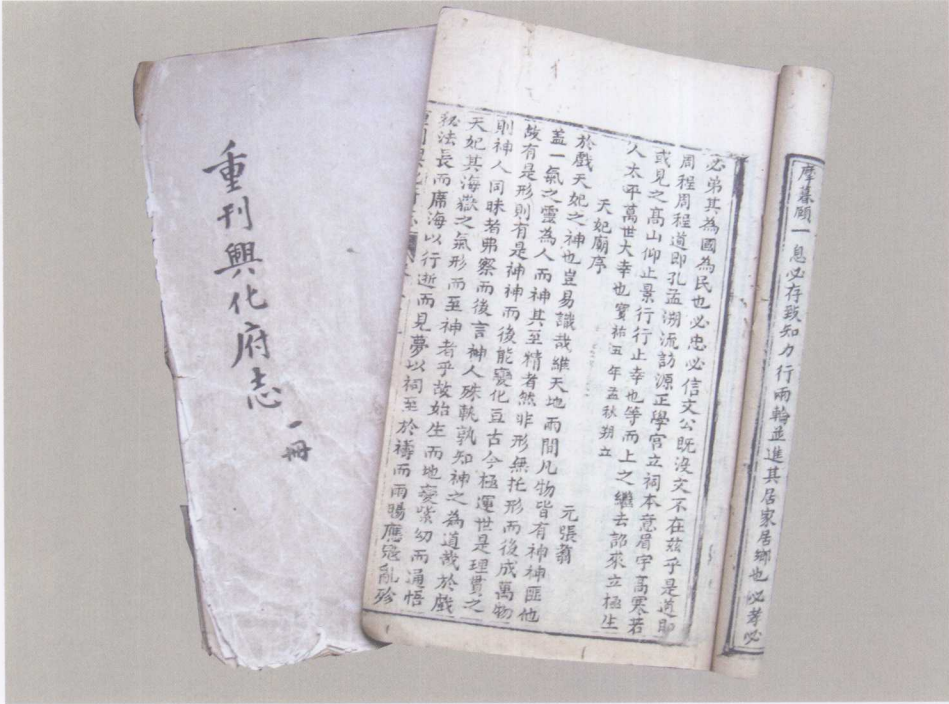 重刊興化府志
一冊
摩纂願一息必存致知力行兩輪並進其居家居鄉也必孝必
必弟其為國為民也必忠必信文公既沒文不在茲乎是道即
周程周程道即孔孟溯流訪源正學官立祠本意眉宇高寒若
或見之高山仰止景行行止幸也等而上之繼去詔來立極生
人太平萬世大幸也寶祐五年孟秋朔立
天妃廟序
元張翥
於戲天妃之神也豈易識哉維天地兩間凡物皆有神神匪他
蓋一氣之靈為人而神其至精者然非形無托形而後成萬物
故有是形則有是神神而後能變化亙古今極運世是理貫之
則神人同昧者弗察而後言神人殊軼孰知神之為道哉於戲
天妃其海嶽之氣形而至神者乎故始生而地變紫幼而通悟
秘法長而席海以行逝而見夢以祠至於禱而雨暘應寇亂殄
重刊興化府志